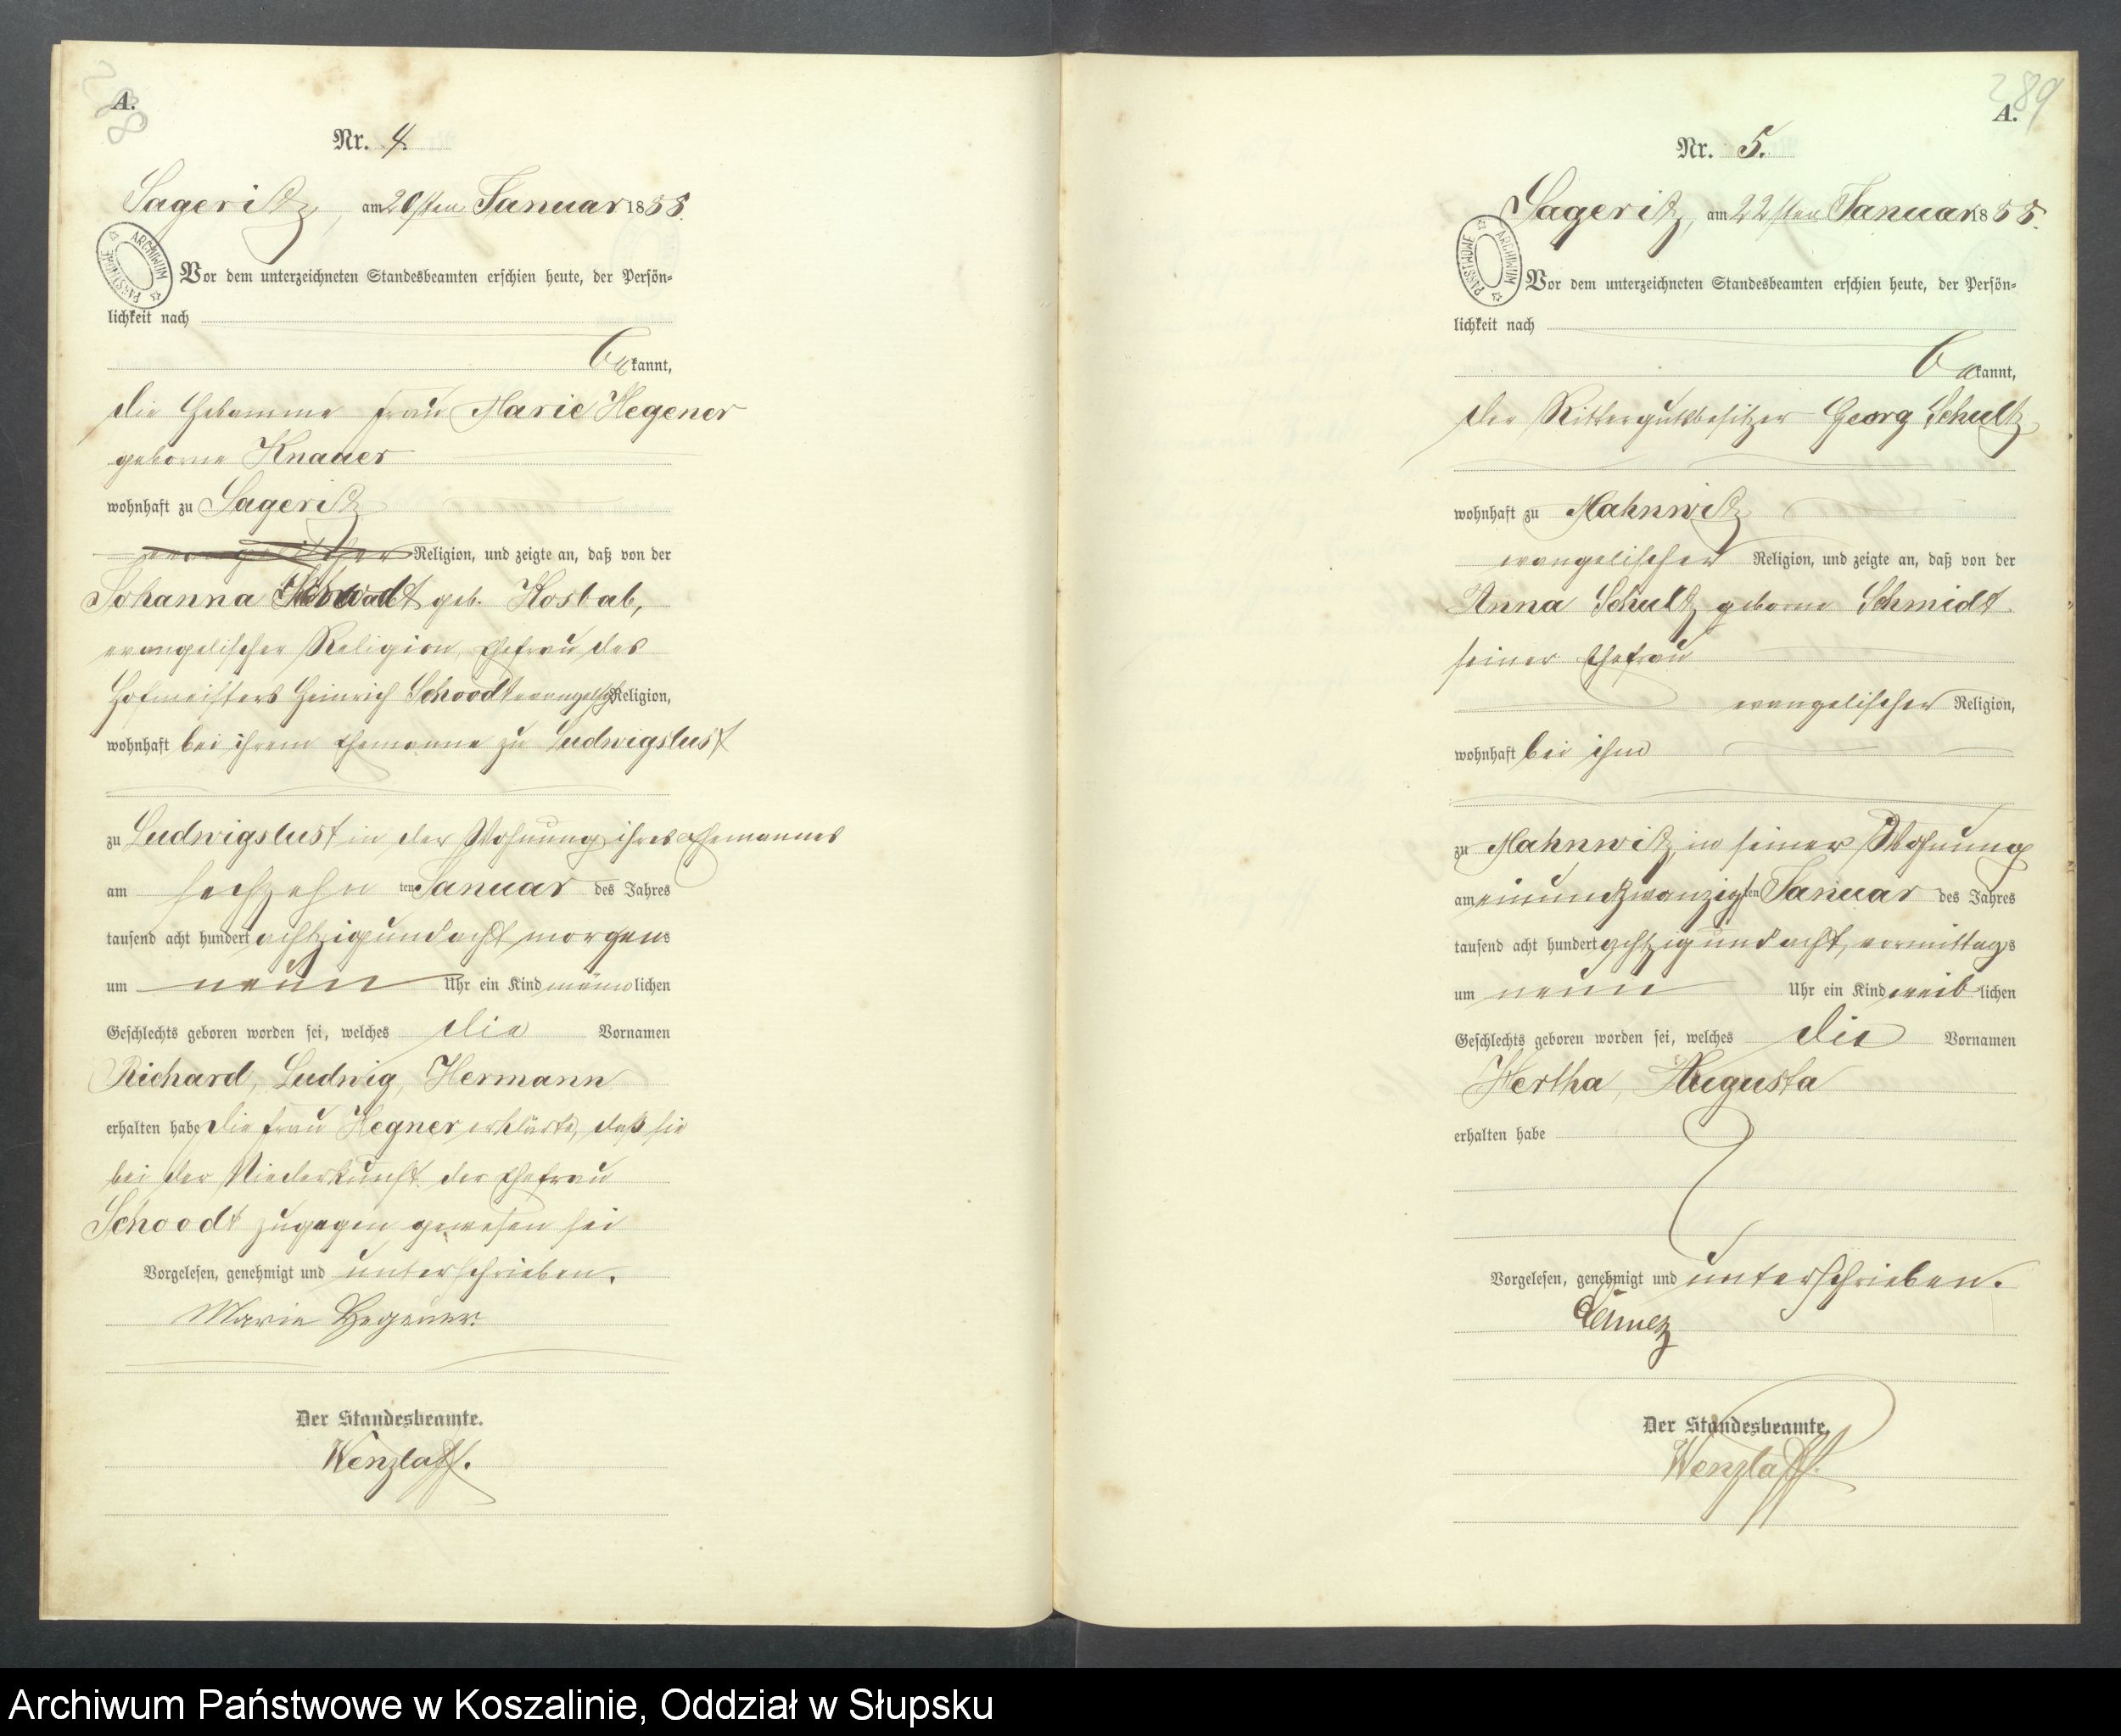 288
A.
Nr. 4.
Sageritz, am 20sten Januar 1888.
ARCHIWUM PAŃSTWOWE
Vor dem unterzeichneten Standesbeamten erschien heute, der Persön-
lichkeit nach
bekannt,
die Hebamme Frau Marie Hegener
geborne Knauer
wohnhaft zu Sageritz
evangelischer Religion, und zeigte an, daß von der
Johanna Schoodt geb. Kosbab,
evangelischer Religion, Ehefrau des
Hofmeisters Heinrich Schoodt evangelisch Religion,
wohnhaft bei ihrem Ehemanne zu Ludwigslust
zu Ludwigslust in der Wohnung ihres Ehemannes
am sechzehn ten Januar des Jahres
tausend acht hundert achtzig und acht morgens
um neun Uhr ein Kind männlichen
Geschlechts geboren worden sei, welches die Vornamen
Richard, Ludwig, Hermann
erhalten habe die Frau Hegner erklärte, daß sie
bei der Niederkunft der Ehefrau
Schoodt zugegen gewesen sei
Vorgelesen, genehmigt und unterschrieben.
Marie Hegener.
Der Standesbeamte.
Wenzlaff.
289
A.
Nr. 5.
Sageritz, am 22sten Januar 1888.
ARCHIWUM PAŃSTWOWE
Vor dem unterzeichneten Standesbeamten erschien heute, der Persön-
lichkeit nach
bekannt,
der Rittergutsbesitzer Georg Schultz
wohnhaft zu Mahnwitz
evangelischer Religion, und zeigte an, daß von der
Anna Schultz geborne Schmidt
seiner Ehefrau
evangelischer Religion,
wohnhaft bei ihm
zu Mahnwitz, in seiner Wohnung
am einundzwanzigsten Januar des Jahres
tausend acht hundert achtzig und acht, vormittags
um neun Uhr ein Kind weiblichen
Geschlechts geboren worden sei, welches die Vornamen
Hertha, Augusta
erhalten habe
Vorgelesen, genehmigt und unterschrieben.
Der Standesbeamte.
Wenzlaff.
Archiwum Państwowe w Koszalinie, Oddział w Słupsku